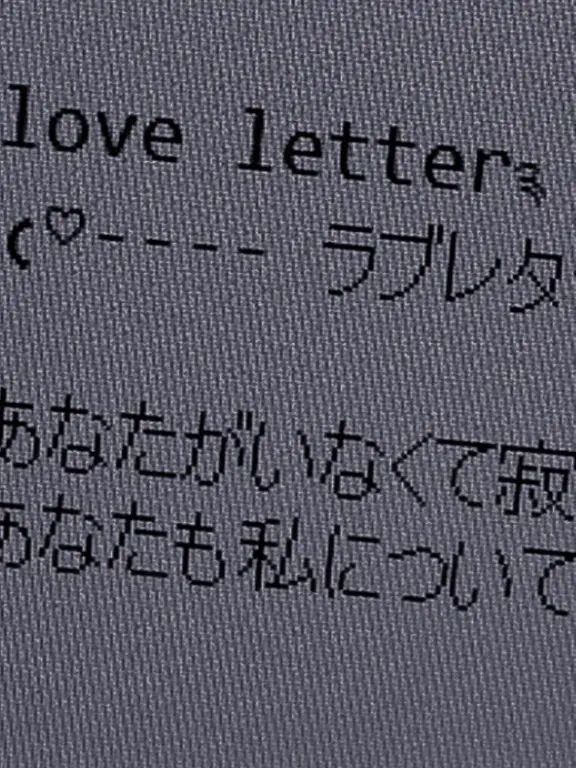 love letter༄
(♡---- ラブレタ
あなたがいなくて寂
あなたも私について